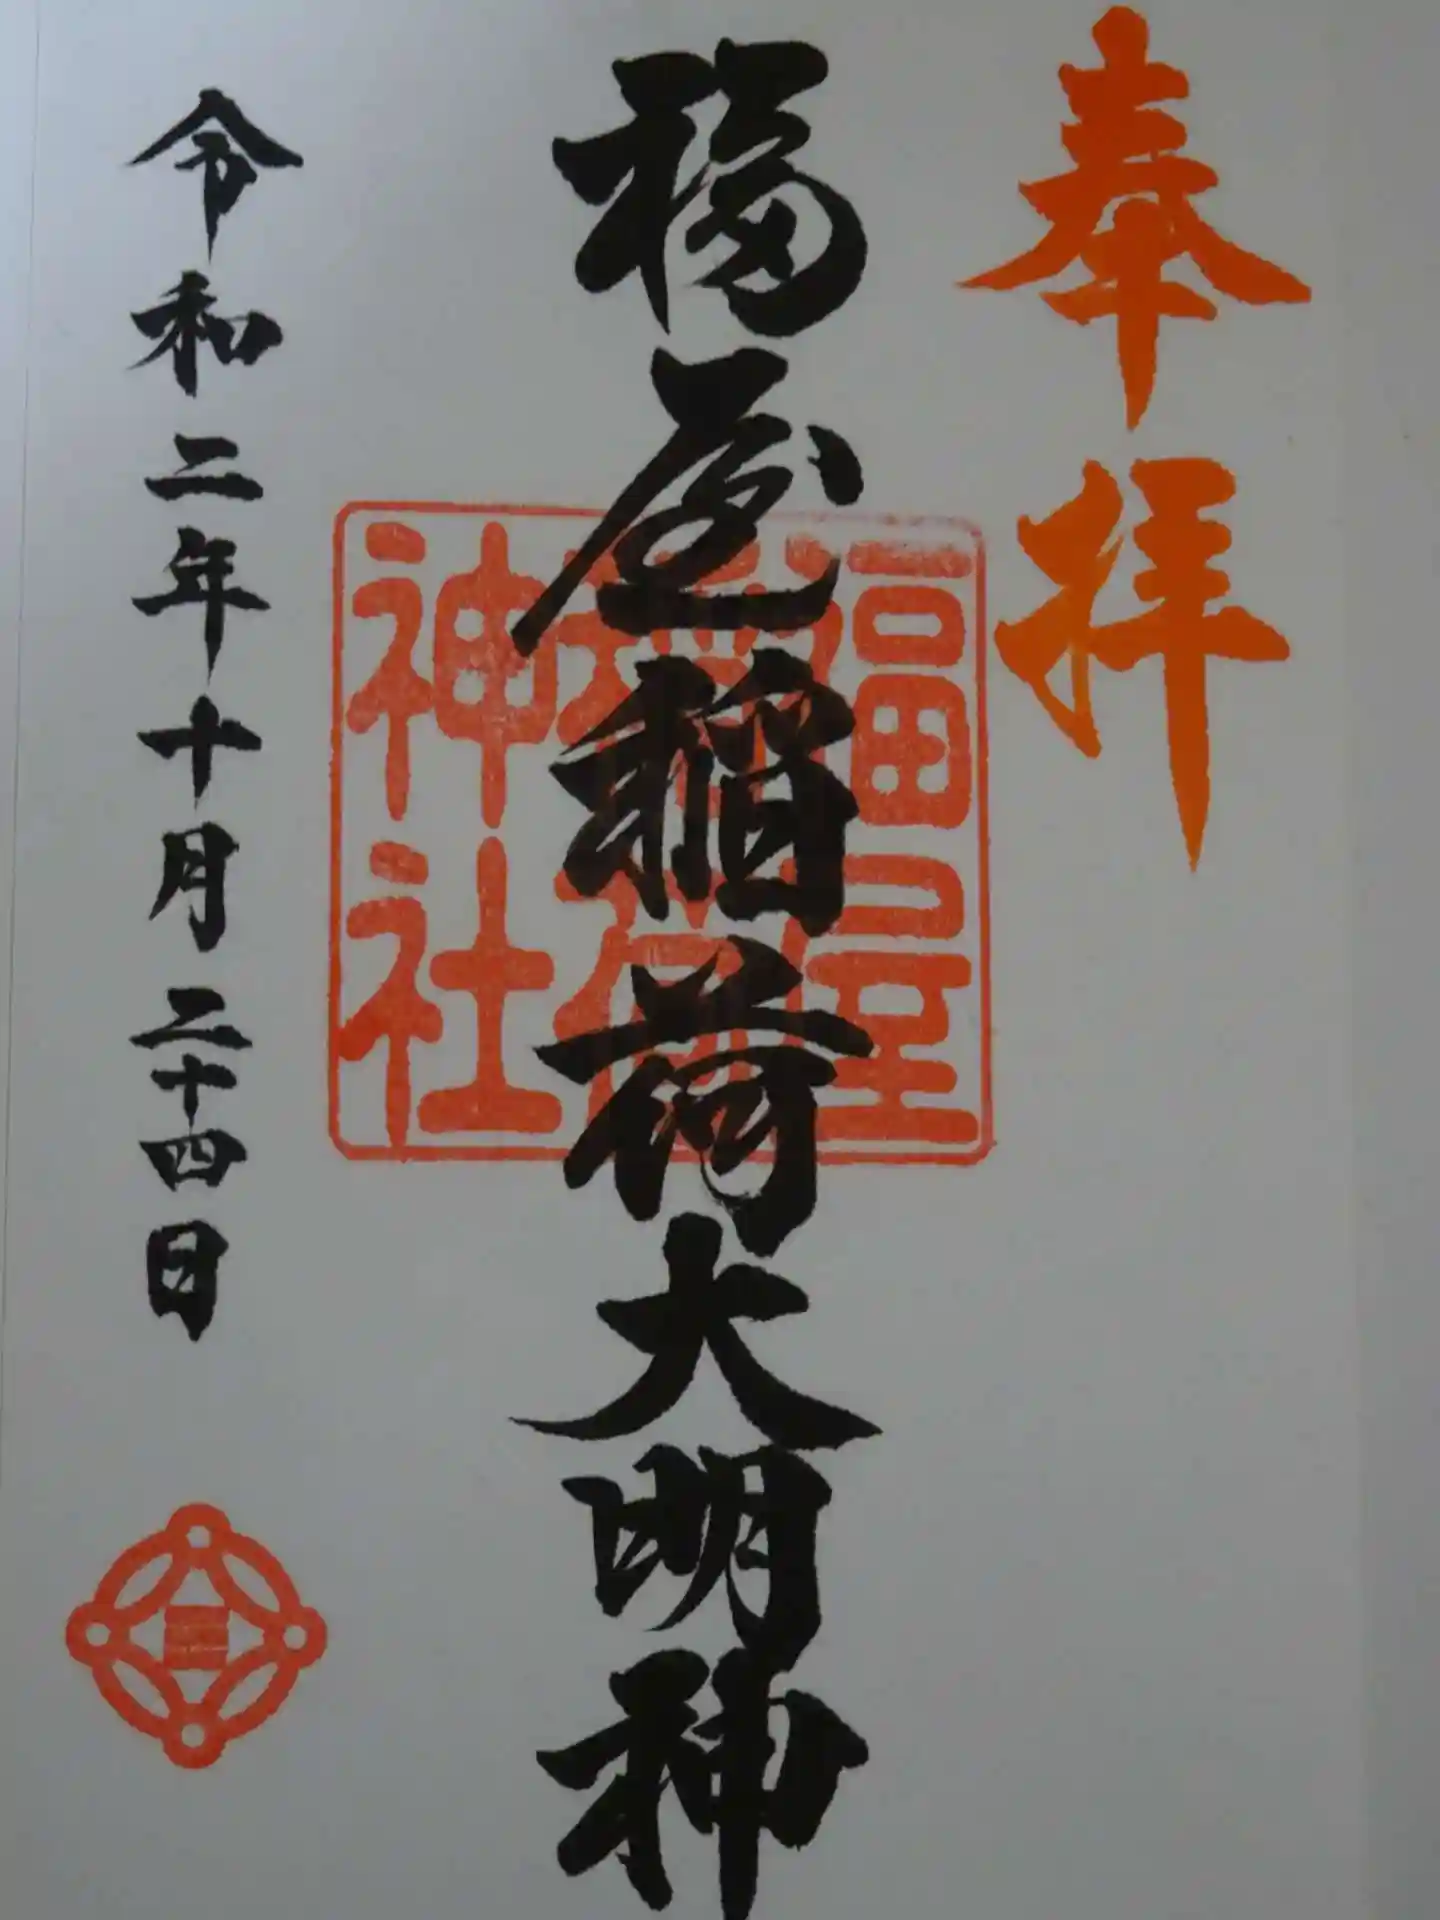 奉拝
福屋稲荷大明神
福屋
稲荷
神社
令和二年十月二十四日